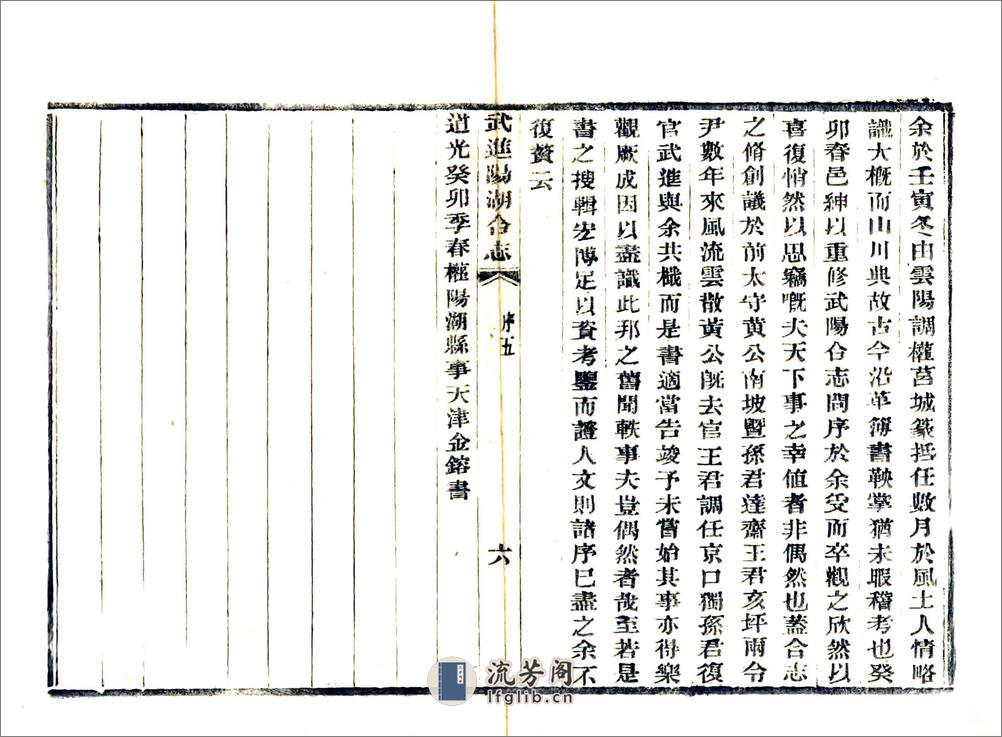 余於壬寅冬由雲陽調權莒城篆抵任數月於風土人情略
識大概而山川典故古今沿革簿書鞅掌猶未暇稽考也癸
卯春邑紳以重修武陽合志問序於余受而卒觀之欣然以
喜復悄然以思竊嘅夫天下事之幸值者非偶然也蓋合志
之脩創議於前太守黃公南坡暨孫君達齋王君亥坪兩令
尹數年來風流雲散黃公旣去官王君調任京口獨孫君復
官武進與余共檝而是書適當告竣予未嘗始其事亦得樂
觀厥成因以盡識此邦之舊聞軼事夫豈偶然者哉至若是
書之搜輯宏博足以資考鑒而證人文則諸序已盡之余不
復贅云
武進陽湖合志 序五 六
道光癸卯季春權陽湖縣事天津金鎔書
流芳阁
lfglib.cn